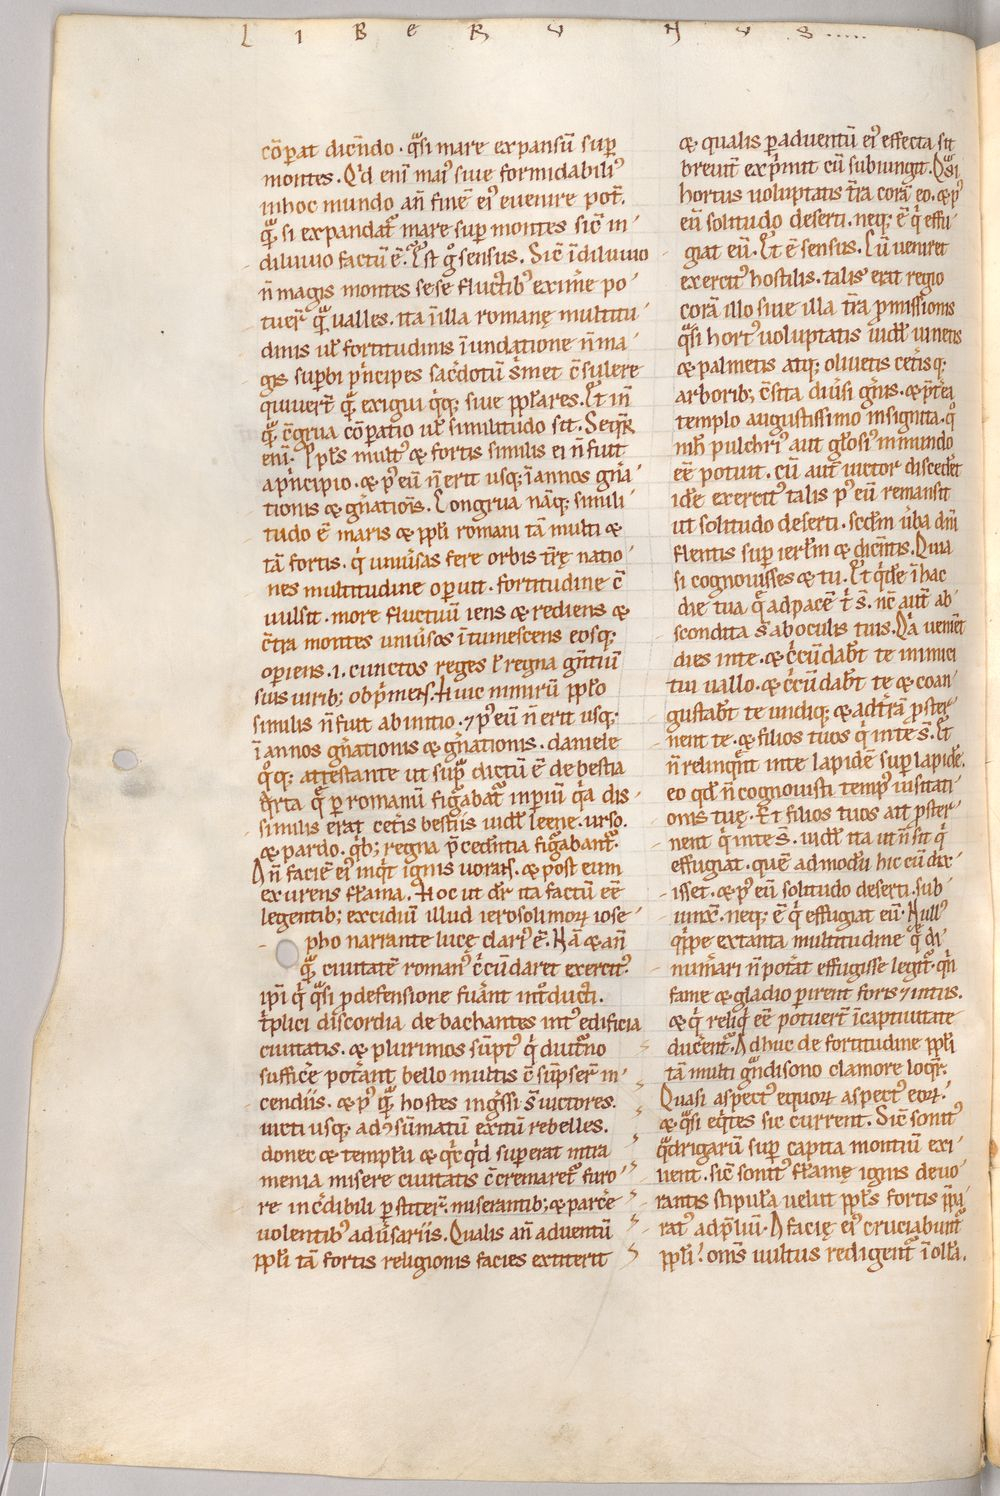 L I B E R V N V S .....
cōparat dicn̄do · qͣsi mare expansū sup̱
montes . Qͥd eni mai᷒ siue formidabili᷒
inhoc mundo an̄ finē ei᷒ euenire pot̄.
qͣ si expandat᷑ mare sup̱ montes sic̄ in
diluuio factū ē. Est g̊ sensus . Sic̄ ī diluuio
n̄ magis montes sese fluctib᷒ eximē po
tuer̄ qͣ ualles . ita ī illa romanę multitu
dinis ul̄ fortitudinis īundatione n̄ ma
gis sup̱bi pͥncipes sac̄dotū s̄met c̄sulere
quiuer̄t qͣ exigui qͥq; siue pp̄lares . Et in̄
qͣ c̄grua cōparatio ul̄ similitudo sit . Seqͥr̄
eni . Pp̄ls mult᷒ ⁊ fortis similis ei n̄ fuit
a pͥncipio . ⁊ p᷒ eū n̄ erit usq; ī annos gn̄a
tionis ⁊ gn̄ation̄is . Congrua nāq; simili
tudo ē maris ⁊ pp̄li romani tā multi ⁊
tā fortis . qͥ uniūsas fere orbis tr̄ę natio
nes multitudine op̱uit . fortitudine c̄
uulsit . more fluctuū iens ⁊ rediens ⁊
c̄tra montes uniūsos ītumescens eosq;
op̱iens . i . cunctos reges ł regna gn̄tiū
suis uirib; obpͥmens . Huic nimirū pp̄lo
similis n̄ fuit ab initio . ⁊ p᷒ eū n̄ erit usq;
ī annos gn̄ationis ⁊ gn̄ationis . daniele
q̊q; attestante ut supͣ dictū ē de bestia
qͣrta qͣ p̱ romanū figͣbat᷑ inp̱iū qͥa dis
similis erat cet̄is bestiis uidel̄ leene . urso .
⁊ pardo . qͥb; regna p̄cedn̄tia figͣbant᷑ .
An̄ faciē ei᷒ inqͥt ignis uorans . ⁊ post eum
exurens flama . Hoc ut dr̄ ita factū eē
legentib; excidiū illud ierosolimoꝝ iose
pho narrante luce clari᷒ ē . Nā ⁊ an̄
qͣ ciuitatē roman᷒ c̄cūdaret exercit᷒
ip̄i qͥ qͣsi p̱ defensione fuānt int̊ducti .
tͥplici discordia debachantes int᷒ edificia
ciuitatis . ⁊ plurimos sūpt᷒ qͥ diut̄no
sufficē potānt bello multis c̄sūpser̄ in
cendiis . ⁊ p᷒ qͣ hostes ingͥssi s̄ uictores .
uicti usq; ad ꝯsūmatū exitū rebelles .
donec ⁊ templū ⁊ qͥcqͥd sup̱erat intra
menia misere ciuitatis c̄cremaret᷑ furo
re inc̄dibili p̱stiter̄ . miserantib; ⁊ parcē
uolentib᷒ adūsariis . Qualis an̄ aduentū
pp̄li tā fortis religionis facies extiterit
⁊ qualis p̱ aduentū ei᷒ effecta sit
breuit̄ expͥmit cū subiungit . Qͣsi
hortus uoluptatis tr̄a corā eo . ⁊ p᷒
eū solitudo deserti . neq; ē qͥ effu
giat eū . Et ē sensus . Cū ueniret
exercit᷒ hostilis . talis erat regio
corā illo siue illa tr̄a pmissionis
qͣsi hort᷒ uoluptatis uidel̄ uinetis
⁊ palmetis atq; oliuetis cet̄isq;
arborib; c̄sita diūsi gn̄is . ⁊ p̄t̄ea
templo augustissimo insignita . q̊
nih̄ pulchri᷒ aut gl̄osi᷒ in mundo
eē potuit . cū aut̄ uictor discedēt
idē exercit᷒ talis p᷒ eū remansit
ut solitudo deserti . scd̄m ūba dn̄i
flentis sup̱ ierl̄m ⁊ dicn̄tis . Quia
si cognouisses ⁊ tu . Et qͥdē ī hac
die tua qͣ ad pacē tͥ s̄ . nc̄ aut̄ ab
scondita s̄ ab oculis tuis . Qͥa uenient
dies in te . ⁊ cͥcūdabt̄ te inimici
tui uallo . ⁊ cͥcūdabt̄ te ⁊ coan
gustabt̄ te undiq; ⁊ ad tr̄ā pster
nent te . ⁊ filios tuos qͥ in te s̄ . Et
n̄ relinqͣnt in te lapidē sup̱ lapidē .
eo qd̄ n̄ cognouisti temp᷒ uisitati
onis tuę . Et filios tuos ait pster
nent qͥ in te s̄ . uidel̄ ita ut n̄ sit qͥ
effugiat . quē admodū hic cū dix
isset . ⁊ p᷒ eū solitudo deserti . sub
iunx̄ . neq; ē qͥ effugiat eū . Null᷒
qͥppe ex tanta multitudine qͣ di
num̄ari n̄ potat̄ effugisse legit᷑ . qͥn
fame ⁊ gladio p̱irent foris ⁊ intus .
⁊ qͥ reliqͥ eē potuer̄t ī captiuitatē
duc̄ent᷑ . Adhuc de fortitudine pp̄li
tā multi gͣndisono clamore loqͥr̄ .
Quasi aspect᷒ equoꝝ aspect᷒ eoꝝ .
⁊ qͣsi eqͥtes sic current . Sic̄ sonit᷒
qͣdrigarū sup̱ capita montiū exi
lient . sic̄ sonit᷒ flamę ignis deuo
rantis stipulā uelut pp̄ls fortis p̄pa
rat᷒ ad pͥliū . A facię ei᷒ cruciabunt᷑
pp̄li . omS uultus redigent᷑ ī ollā .